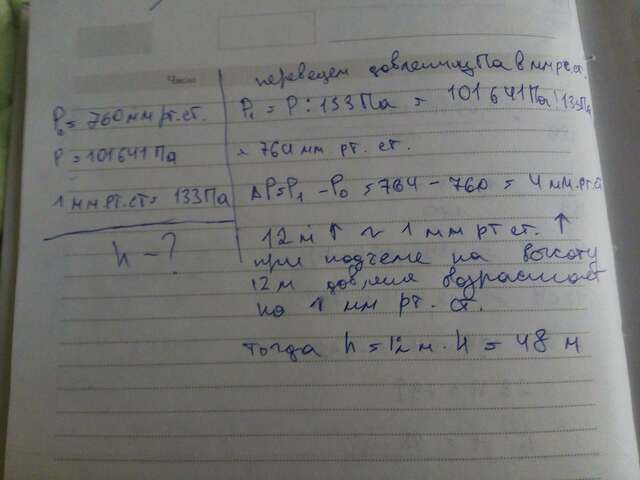 Число
переведем давление Па в мм рт. ст.
P₀ = 760 мм рт. ст.
P = 101641 Па
1 мм. рт. ст = 133 Па
h - ?
P₁ = P : 133 Па = 101641 Па : 133 Па
= 764 мм рт. ст.
ΔP = P₁ - P₀ = 764 - 760 = 4 мм. рт. ст
12 м ↑ ~ 1 мм рт ст. ↑
при подъеме на высоту
12 м давление возрастает
на 1 мм рт. ст.
тогда h = 12 м · 4 = 48 м